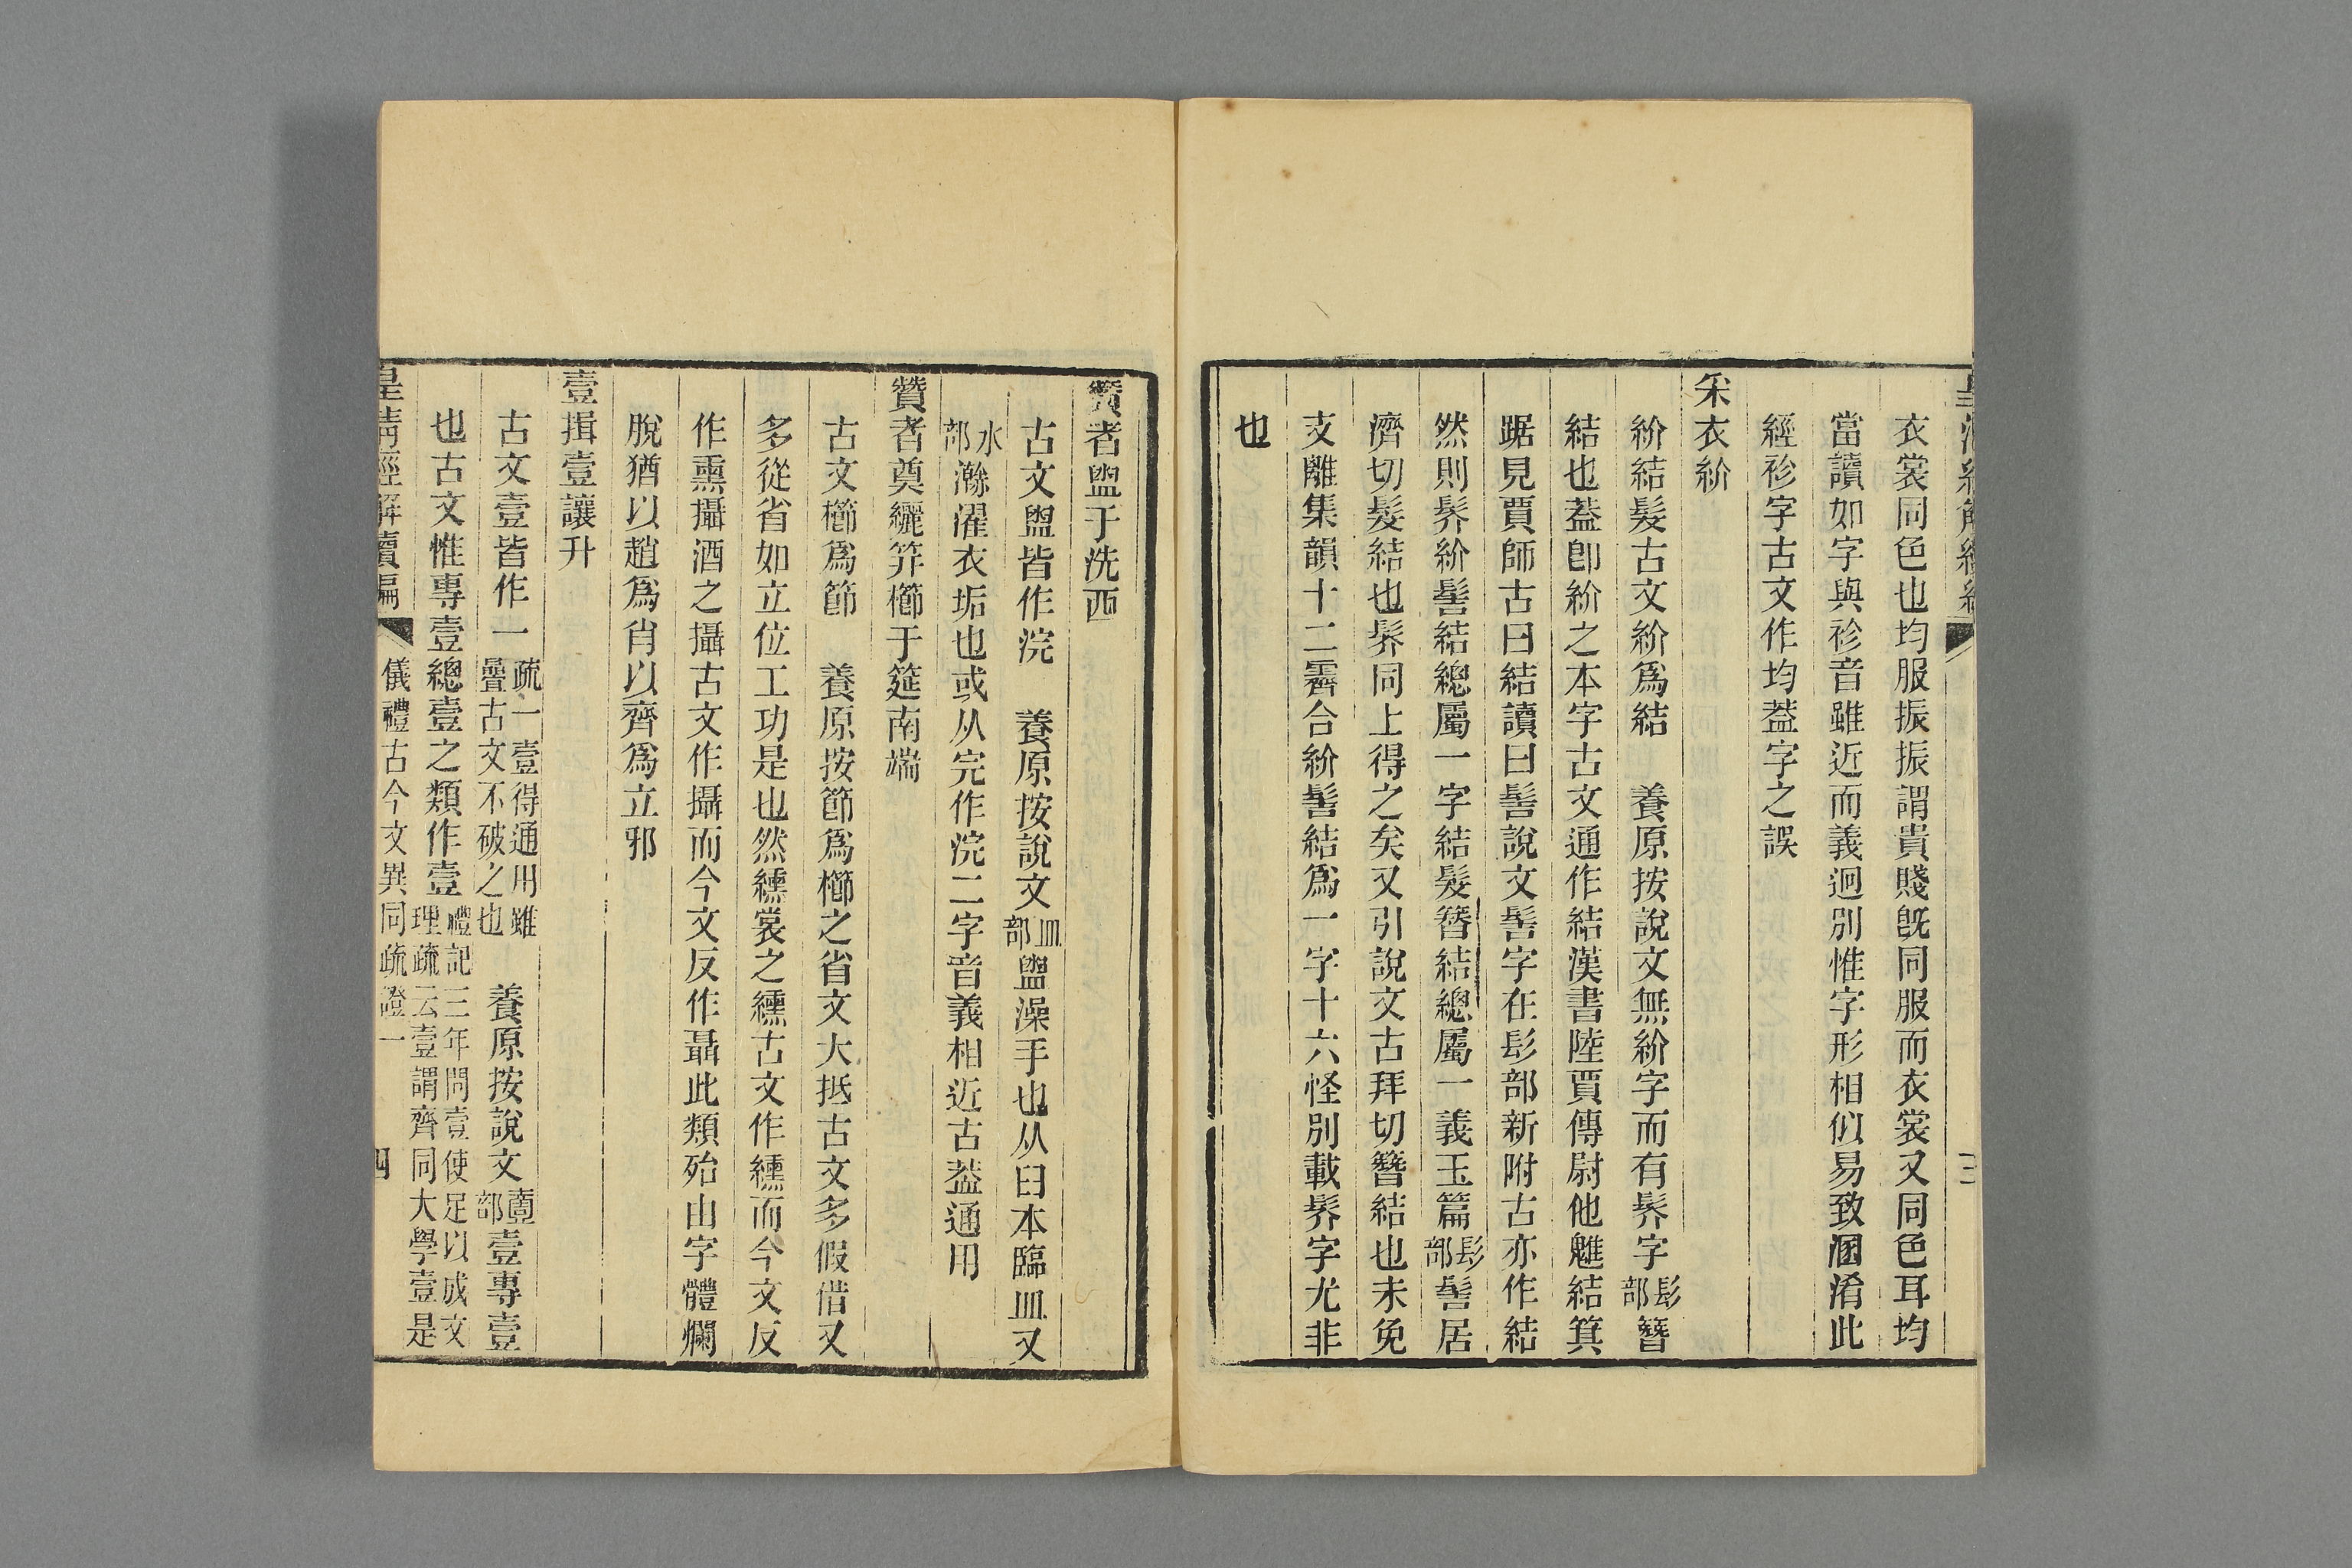 衣裳同色也均服振振謂貴賤旣同服而衣裳又同色耳均
當讀如字與袗音雖近而義迥別惟字形相似易致溷淆此
經袗字古文作均葢字之誤
采衣紒
紒結髮古文紒爲結　養原按說文無紒字而有髻字髟部簪
結也葢卽紒之本字古文通作結漢書陸賈傳尉他魋結箕
踞見賈師古曰結讀曰髻說文髻字在髟部新附古亦作結
然則髻紒髻結總屬一字結髮簪結總屬一義玉篇髟部髻居
濟切髮結也髻同上得之矣又引說文古拜切簪結也未免
支離集韻十二霽合紒髻結爲一字十六怪別載髻字尤非
也
贊者盥于洗西
古文盥皆作浣　養原按說文皿部盥澡手也从臼水臨皿又
水部瀚濯衣垢也或从完作浣二字音義相近古葢通用
贊者奠纚笄櫛于筵南端
古文櫛爲節　養原按節爲櫛之省文大抵古文多假借又
多從省如立位工功是也然纁裳之纁古文作纁而今文反
作熏攝酒之攝古文作攝而今文反作聶此類殆由字體爛
脫猶以趙爲肖以齊爲立邪
壹揖壹讓升
古文壹皆作一疏一壹得通用雖疊古文不破之也　養原按說文壹部壹專壹
也古文惟專壹總壹之類作壹禮記三年問壹使足以成文理疏云壹謂齊同大學壹是
皇清經解續編　儀禮古今文異同疏證一　四